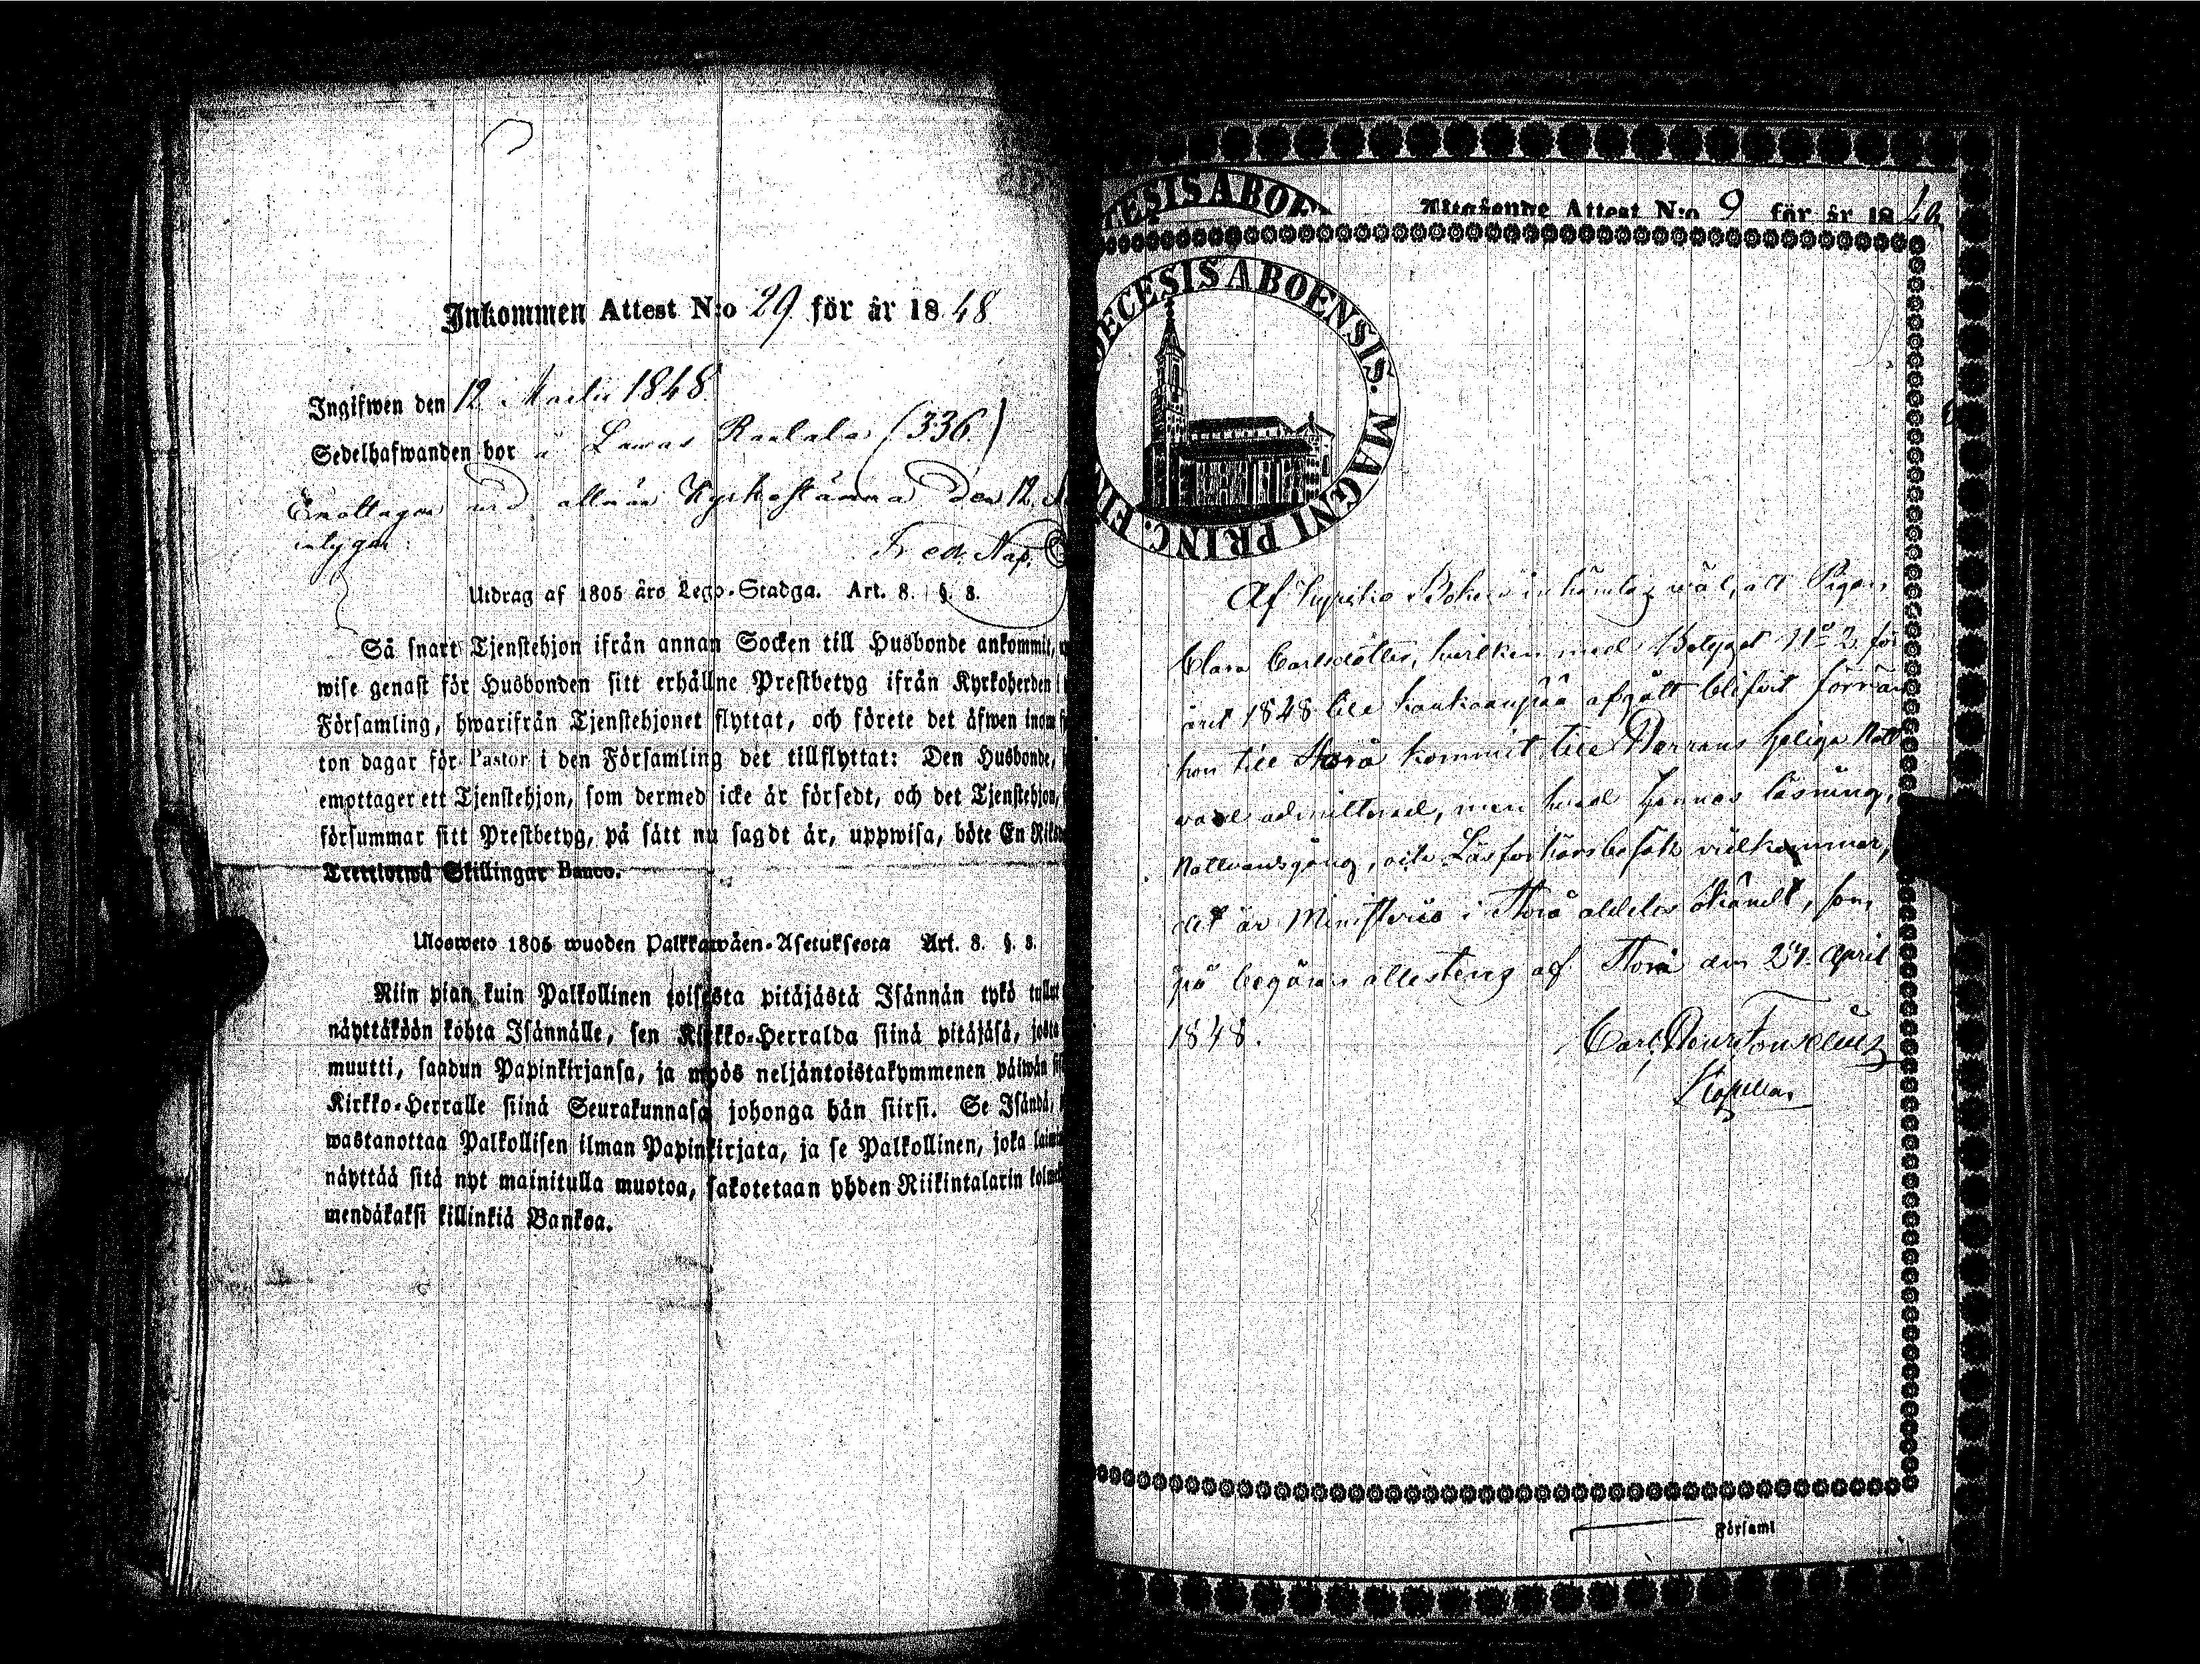 Inkommen Attest N:o 29 för år 1848
Ingifwen den 12 Martii 1848.
Sedelhafwanden bor å Lawas Raalala (336.)
Emottagen wid allmän Kyrkostämma den 12
intygar: Fredr. Nap.
Utdrag af 1805 års Lego-Stadga. Art. 8. §. 8.
Så snart Tjenstehjon ifrån annan Socken till Husbonde ankommit,
wise genast för Husbonden sitt erhållne Prestbetyg ifrån Kyrkoherden i
Församling, hwarifrån Tjenstehjonet flyttat, och förete det äfwen inom
ton dagar för Pastor i den Församling det tillflyttat: Den Husbonde,
emottager ett Tjenstehjon, som dermed icke är försedt, och det Tjenstehjon,
försummar sitt Prestbetyg, på sätt nu sagdt är, uppwisa, böte En
Trettiotwå Skillingar Banco.
Ulosweto 1805 wuoden Palkkawäen-Asetuksesta Art. 8. §. 8.
Niin pian kuin Palkollinen toisesta pitäjästä Isännän tykö tullut
näyttäköön kohta Isännälle, sen Kirkko-Herralda siinä pitäjäsä, josta
muutti, saadun Papinkirjansa, ja myös neljäntoistakymmenen päiwän
Kirkko-Herralle siinä Seurakunnasa johonga hän siirsi. Se Isändä,
wastanottaa Palkollisen ilman Papinkirjata, ja se Palkollinen, joka
näyttää sitä nyt mainitulla muotoa, sakotetaan yhden Riikintalarin
mendäkaksi killinkiä Bankoa.
ECESIS ABOE
Attest N:o 9 för år 18
DECESIS ABOENSIS. MAGNI PRINC. FI
Af Kyrko Boken inhämtas wäl, att Pigan
Clara Carlsdotter, hwilken med Betyget No 2 för
året 1848 till Kankaanpää afgått blifwit förrän
hon till Storå kommit till Herrans Heliga Natt
ward admitterad, men hwad hennes läsning,
Nattvardsgång, och Läsförhörsbesök widkommer,
det är Ministerio i Storå aldeles okändt, som
på begäran attesteras af Storå den 24 April
1848. Carl Henr. Fonselius
Kapellan
Församl